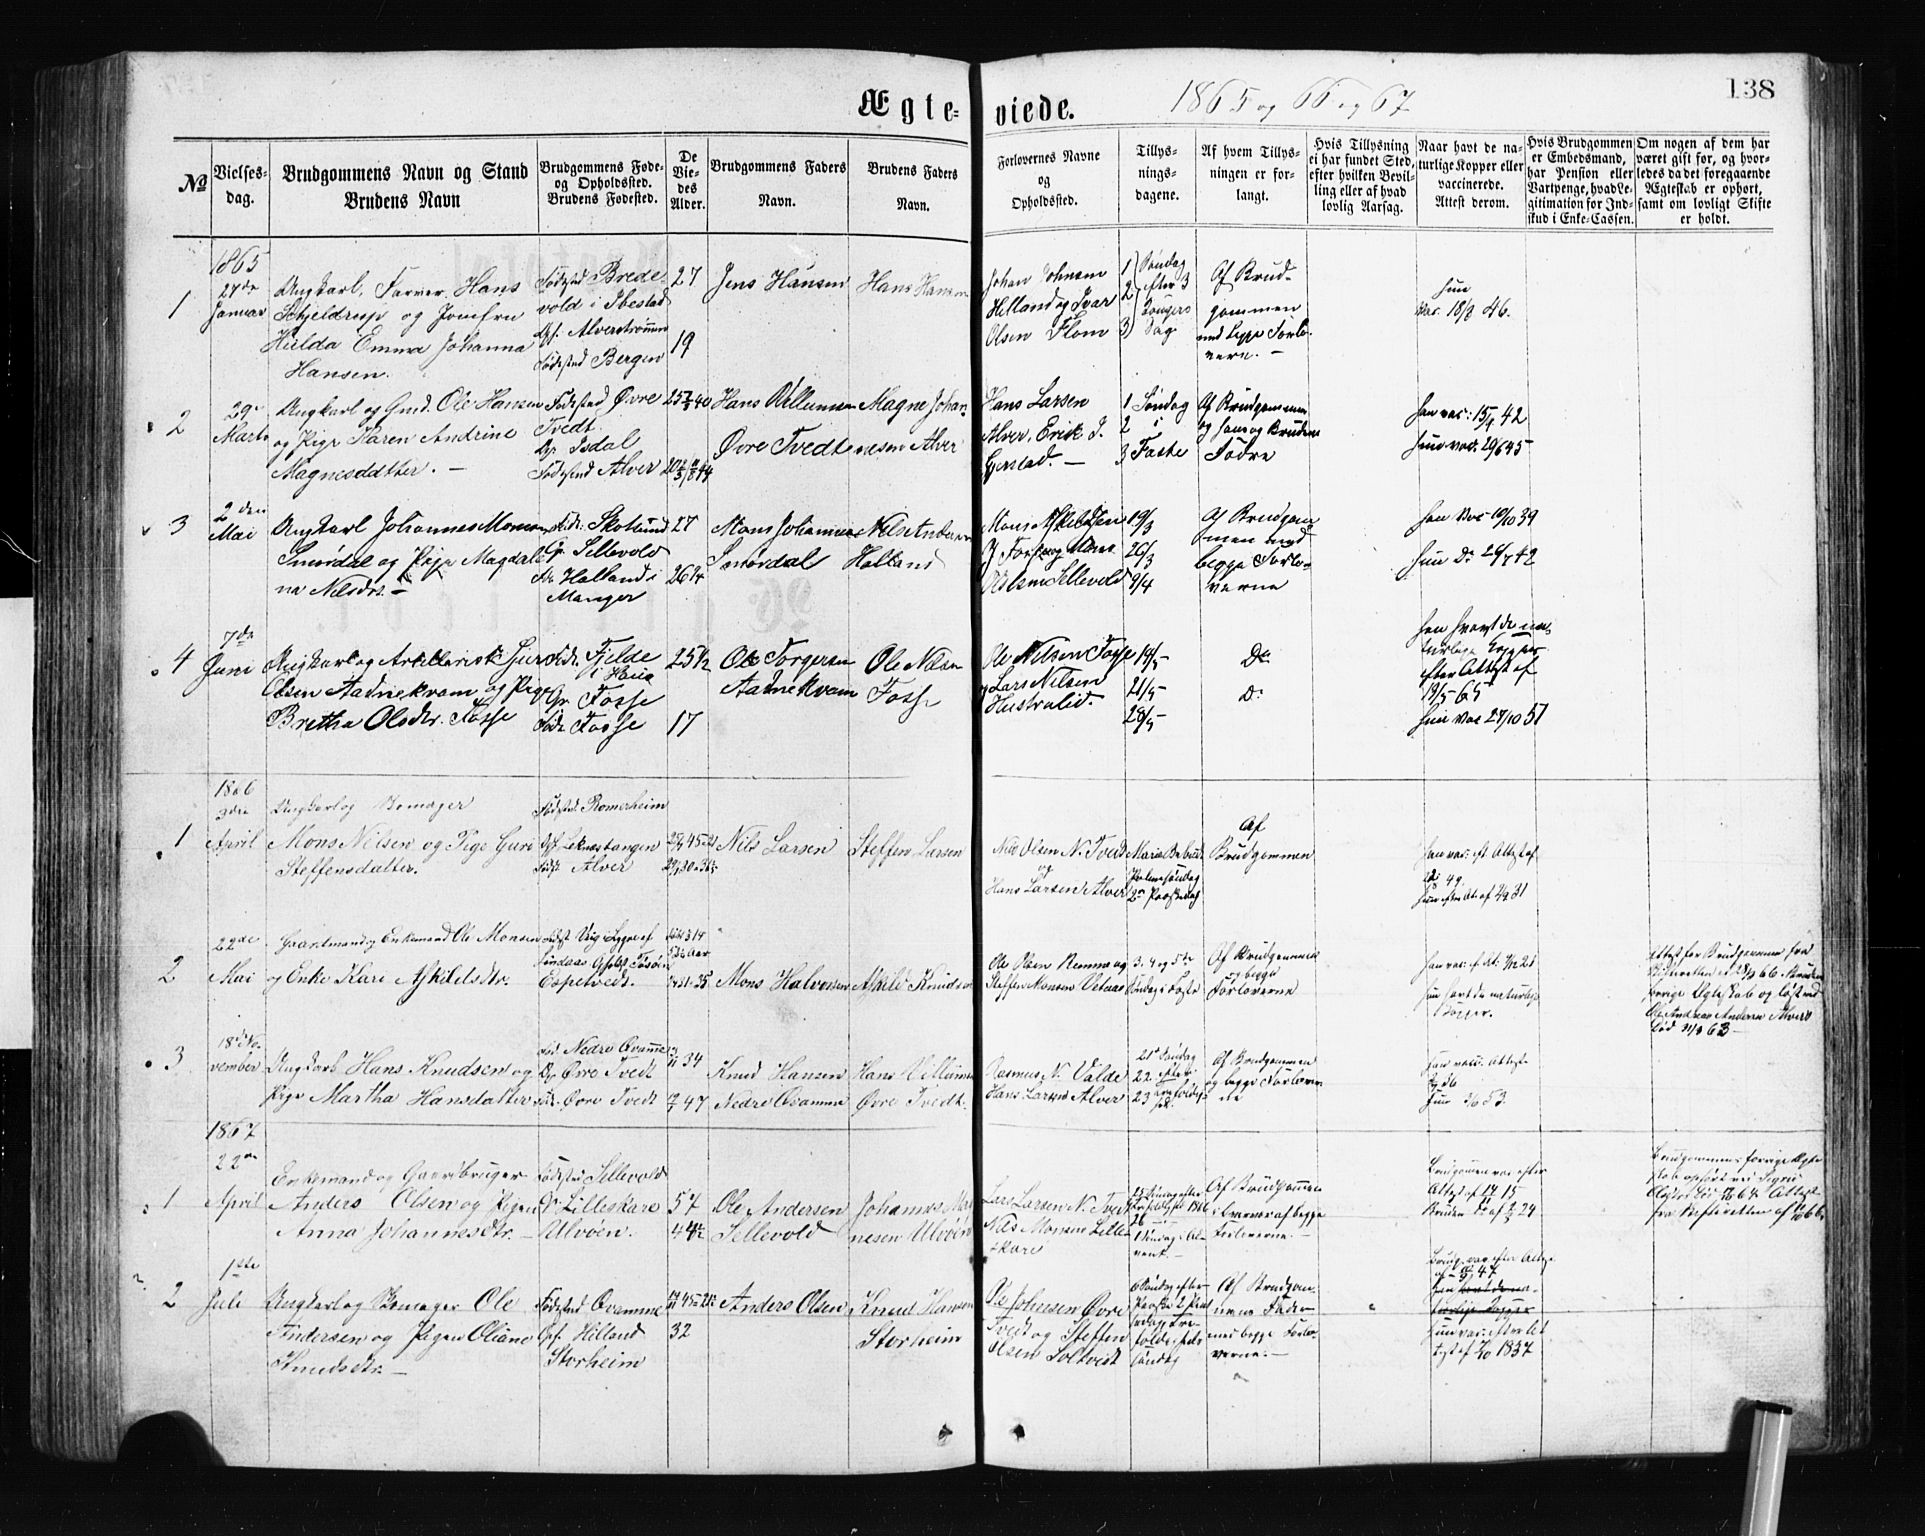 138
Ægteviede. 1865 og 66 og 67
No
Vielsesdag.
Brudgommens Navn og Stand
Brudens Navn
Brudgommens Føde- og Opholdssted.
Brudens Fødested.
De Viedes Alder.
Brudgommens Faders Navn.
Brudens Faders Navn.
Forlovernes Navne og Opholdssted.
Tillysningsdagene.
Af hvem Tillysningen er forlangt.
Hvis Tillysning ei har fundet Sted, efter hvilken Bevilling eller af hvad lovlig Aarsag.
Naar havt de naturlige Kopper eller vaccinerede. Attest derom.
Hvis Brudgommen er Embedsmand, har Pension eller Vartpenge, hvad Legitimation for Indskud i Enke-Cassen.
Om nogen af dem har været gift før, og hvorledes da det foregaaende Ægteskab er ophørt, samt om lovligt Skifte er holdt.
1865
1
27de Januar
Ungkarl, Farver Hans
Schjeldrup og Jomfru
Hulda Emma Johanna
Hansen.
Fødested Bredevold i Ibestad
Opf. Alverstrømmen
Fødested Bergen
27
19
Jens Hansen
Hans Hansen
Johan Johnsen
Helland og Ivar
Olsen Flom
1 2 3 Søndag efter 3 Kongers Dag
Af Brudgommen
med begge Forlovere. –
hun
vac. 18/8 46.
2
29de Marts
Ungkarl og Gmd. Ole Hansen
og Pige Karen Andrine
Magnesdatter. –
Fødested Øvre
Tvedt.
Op. Isdal
Fødested Alver
Hans Villumsen
Øvre Tvedt
Magne Johannesen Alver
Hans Larsen
Alver, Erik J.
1 Søndag
2 i
3 Faste
Af Brudgommen
og hans og Brudens
Fødre
han vac: 15/4 42
hun vac. 29/6 45
3
2den Mai
Ungkarl Johannes Monsen
Smørdal og Pige Magdalena
Nilsdr. –
Føds. Skotlund
Op. Sellevold
Fds. Holland i
Manger
27
26 1/4
Mons Johannesen
Smørdal
Nils Andersen
Holland
19/3
26/3
9/4
Af Brudgommen med
begge Forloverne
han Vac 10/10 39
hun Do 24/7 42
4
7de Juni
Ungkarl og Artillerist Sjur
Olsen Aadnekvam og Pige
Bretha Olsdr. Fosse
Føds. Fjelde
i Haus
Op. Fosse
Føds. Fosse
25 1/2
17
Ole Torgersen
Aadnekvam
Ole Nilsen
Fosse
Ole Nilsen Fosse
og Lars Nilsen
Hustralid.
14/5
21/5
28/5
Do
Do
han havt de naturlige Kopper
efter Attest af
19/5 65
hun Vac 27/10 57
1866
1
3die April
Ungkarl og Skomager
Mons Nilsen og Pige Guri
Steffensdatter.
Fødested Romerheim
Opf. Leknestangen
Fødst Alver
Nils Larsen
Steffen Larsen
Nils Olsen N. Tvedt
og
Hans Larsen Alver
Maria Bebud
Palmesøndag
2en Paaskedag
Af
Brudgommen
han vac. eft Attest af
49
hun efter At. af 4/9 31
2
22de Mai
Gaardmand og Enkemand Ole Monsen
og Enke Kari Askildsdr.
Espetvedt.
Mons Halvorsen
Askild Knudsen
Ole Olsen Remme og
Steffen Monsen Vetaas
3. 4 og 5te
Søndag i Faste
Af Brudgommen
og begge
Forloverne
hun havt de naturlige
Kopper.
Attest for Brudgommen fra
Skifteretten af 28/3 66. Bruden
forrige Ægteskab opløst ved
Ole Andreas Andersen Alvers
Død 31/3 63 –
3
18de November
Ungkarl Hans Knudsen og
Pige Martha Hansdatter
Fød. Nedre Qvamme
Op. Øvre Tvedt
Føds. Øvre Tvedt
34
47
Knud Hansen
Nedre Qvamme
Hans Villumsen
Øvre Tvedt.
Rasmus N. Valde
Hans Larsen Alver
21de Søndag
22 efter
23 Trefoldigh.
Af Brudgommen
og begge Forloverne
han vac. Attest
36
hun 2/6 53.
1867
1
22de April
Enkemand og Gaardbruger
Anders Olsen og Pigen
Anna Johannesdtr. –
Fødested Sellevold
Op. Lilleskare
Ulvøen.
57
44
Ole Andersen
Sellevold
Johannes Magnesen Ulvøen
Lars Larsen N. Tvedt
Nils Monsen Lilleskare
Af Brudgommen
begge
Forloverne. –
Brudgommen vac efter
Attest af 15
Bruden do af 24
Brudgommens forrige Ægteskab ophørt ved Sigrid
64. Attest
fra Skifteretten af 66.
2
1ste Juli
Ungkarl og Skomager Ole
Andersen og Pigen Oliane
Knudsdtr. –
Fødested Qvamme
Opf. Hilland
Storheim
32
Anders Olsen
Knud Hansen
Storheim
Ole Johnsen Øvre
Tvedt og Steffen
Olsen Soltvedt
6 Søndag efter
Paaske 2 Pintsedag, Trefoldigheds
Søndag
Af Brudgommens Fader
med begge Forloverne. –
Brudg. vac efter Attest
af 47
han havt de naturlige Kopper
hun vac. efter Attest af 1837